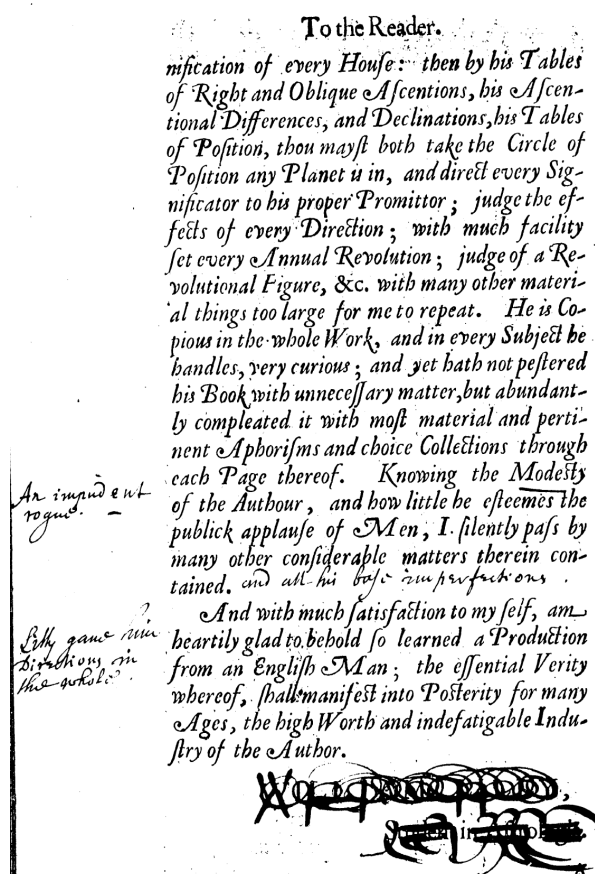 To the Reader.
nification of every Houſe: then by his Tables
of Right and Oblique Aſcentions, his Aſcen-
tional Differences, and Declinations, his Tables
of Poſition, thou mayſt both take the Circle of
Poſition any Planet is in, and direct every Sig-
nificator to his proper Promittor; judge the ef-
fects of every Direction; with much facility
ſet every Annual Revolution; judge of a Re-
volutional Figure, &c. with many other materi-
al things too large for me to repeat. He is Co-
pious in the whole Work, and in every Subject he
handles, very curious; and yet hath not peſtered
his Book with unneceſſary matter, but abundant-
ly compleated it with moſt material and perti-
nent Aphoriſms and choice Collections through
each Page thereof. Knowing the Modeſty
An impudent
rogue.
of the Authour, and how little he eſteemes the
publick applauſe of Men, I ſilently paſs by
many other conſiderable matters therein con-
tained. and all his baſe imperfections.
And with much ſatisfaction to my ſelf, am
Lilly gaue him
Directions in
the whole.
heartily glad to behold ſo learned a Production
from an Engliſh Man; the eſſential Verity
whereof, ſhall manifeſt into Poſterity for many
Ages, the high Worth and indefatigable Indu-
ſtry of the Author.